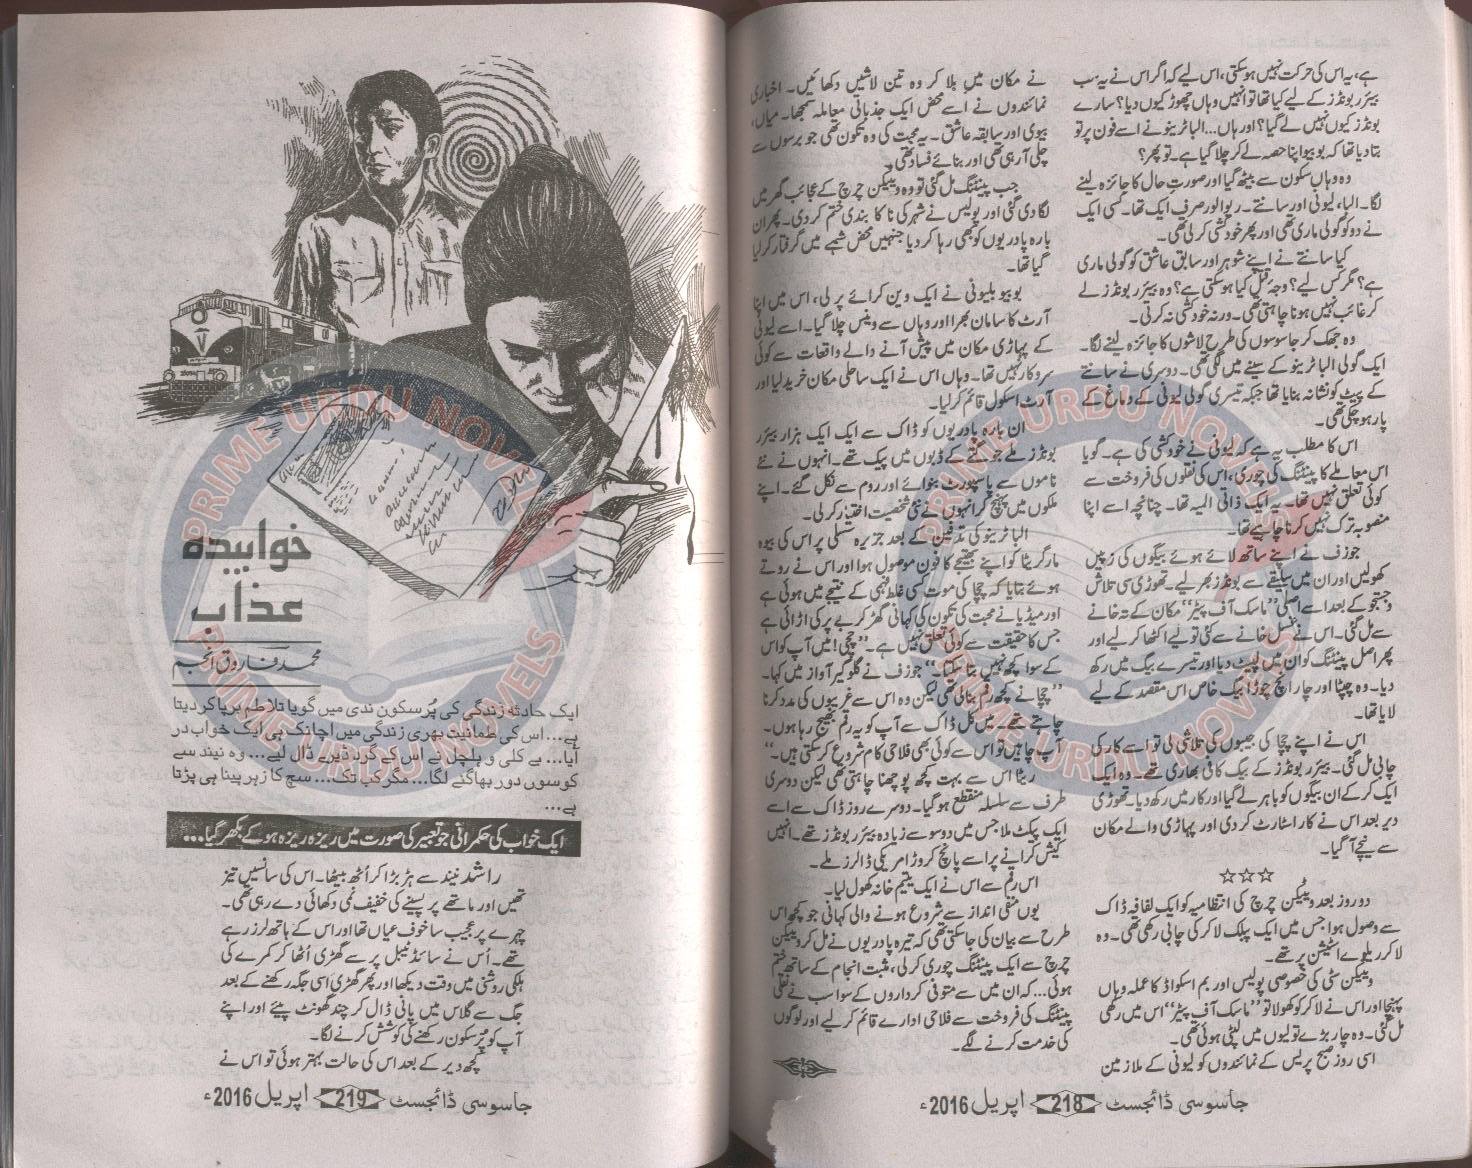 ہے، یہ اس کی حرکت نہیں ہو سکتی، اس لیے کہ اگر اس نے یہ سب
بیئرر بونڈز کے لیے کیا تھا تو انہیں وہاں چھوڑ کیوں دیا؟ سارے
بونڈز کیوں نہیں لے گیا؟ اور ہاں... البا ٹرینو نے اسے فون پر تو
بتا دیا تھا کہ بوبیو اپنا حصہ لے کر چلا گیا ہے۔ تو پھر؟
وہ وہاں سکون سے بیٹھ گیا اور صورتِ حال کا جائزہ لینے
لگا۔ البا، لیونی اور سانتے۔ ریوالور صرف ایک تھا۔ کسی ایک
نے دو کو گولی ماری تھی اور پھر خودکشی کر لی تھی۔
کیا سانتے نے اپنے شوہر اور سابق عاشق کو گولی ماری
ہے؟ مگر کس لیے؟ وجہ قتل کیا ہو سکتی ہے؟ وہ بیئرر بونڈز لے
کر غائب نہیں ہونا چاہتی تھی۔ ورنہ خودکشی نہ کرتی۔
وہ جھک کر جاسوسوں کی طرح لاشوں کا جائزہ لینے لگا۔
ایک گولی البا ٹرینو کے سینے میں لگی تھی۔ دوسری نے سانتے
کے پیٹ کو نشانہ بنایا تھا جبکہ تیسری گولی لیونی کے دماغ کے
پار ہو چکی تھی۔
اس کا مطلب یہ ہے کہ لیونی نے خودکشی کی ہے۔ گویا
اس معاملے کا پینٹنگ کی چوری، اس کی نقلوں کی فروخت سے
کوئی تعلق نہیں تھا۔ یہ ایک ذاتی المیہ تھا۔ چنانچہ اسے اپنا
منصوبہ ترک نہیں کرنا چاہیے تھا۔
جوزف نے اپنے ساتھ لائے ہوئے بیگوں کی زپیں
کھولیں اور ان میں سلیقے سے بونڈز بھر لیے۔ تھوڑی سی تلاش
و جستجو کے بعد اسے اصلی ”ماسک آف پیٹر“ مکان کے تہ خانے
سے مل گئی۔ اس نے غسل خانے سے کئی تولیے اکٹھا کر لیے اور
پھر اصل پینٹنگ کو ان میں لپیٹ دیا اور تیسرے بیگ میں رکھ
دیا۔ وہ چپٹا اور چار انچ چوڑا بیگ خاص اس مقصد کے لیے
لایا تھا۔
اس نے اپنے چچا کی جیبوں کی تلاشی لی تو اسے کار کی
چابی مل گئی۔ بیئرر بونڈز کے بیگ کافی بھاری تھے۔ وہ ایک
ایک کر کے ان بیگوں کو باہر لے گیا اور کار میں رکھ دیا۔ تھوڑی
دیر بعد اس نے کار اسٹارٹ کر دی اور پہاڑی والے مکان
سے نیچے آ گیا۔
☆☆☆
دو روز بعد ویٹیکن چرچ کی انتظامیہ کو ایک لفافہ ڈاک
سے وصول ہوا جس میں ایک پبلک لاکر کی چابی رکھی تھی۔ وہ
لاکر ریلوے اسٹیشن پر تھے۔
ویٹیکن سٹی کی خصوصی پولیس اور بم اسکواڈ کا عملہ وہاں
پہنچا اور اس نے لاکر کو کھولا تو ”ماسک آف پیٹر“ اس میں رکھی
مل گئی۔ وہ چار بڑے تولیوں میں لپٹی ہوئی تھی۔
اسی روز صبح پریس کے نمائندوں کو لیونی کے ملازمین
نے مکان میں بلا کر وہ تین لاشیں دکھائیں۔ اخباری
نمائندوں نے اسے محض ایک جذباتی معاملہ سمجھا۔ میاں،
بیوی اور سابقہ عاشق۔ یہ محبت کی وہ تکون تھی جو برسوں سے
چلی آ رہی تھی اور بنائے فساد تھی۔
جب پینٹنگ مل گئی تو وہ ویٹیکن چرچ کے عجائب گھر میں
لگا دی گئی اور پولیس نے شہر کی ناکا بندی ختم کر دی۔ پھر ان
بارہ پادریوں کو بھی رہا کر دیا جنہیں محض شبہے میں گرفتار کر لیا
گیا تھا۔
بوبیو بلیونی نے ایک وین کرائے پر لی، اس میں اپنا
آرٹ کا سامان بھرا اور وہاں سے وینس چلا گیا۔ اسے لیونی
کے پہاڑی مکان میں پیش آنے والے واقعات سے کوئی
سروکار نہیں تھا۔ وہاں اس نے ایک ساحلی مکان خرید لیا اور
آرٹ اسکول قائم کر لیا۔
ان بارہ پادریوں کو ڈاک سے ایک ایک ہزار بیئرر
بونڈز ملے جو گتے کے ڈبوں میں پیک تھے۔ انہوں نے نئے
ناموں سے پاسپورٹ بنوائے اور روم سے نکل گئے۔ اپنے
ملکوں میں پہنچ کر انہوں نے نئی شخصیت اختیار کر لی۔
البا ٹرینو کی تدفین کے بعد جزیرہ سسلی پر اس کی بیوہ
مارگریٹا کو اپنے بھتیجے کا فون موصول ہوا اور اس نے روتے
ہوئے بتایا کہ چچا کی موت کسی غلط فہمی کے نتیجے میں ہوئی ہے
اور میڈیا نے محبت کی تکون کی کہانی گھڑ کر بے پر کی اڑائی ہے
جس کا حقیقت سے کوئی تعلق نہیں ہے۔ ”چچی! میں آپ کو اس
کے سوا کچھ نہیں بتا سکتا۔“ جوزف نے گلوگیر آواز میں کہا۔
”چچا نے کچھ رقم بنالی تھی لیکن وہ اس سے غریبوں کی مدد کرنا
چاہتے تھے۔ میں کل ڈاک سے آپ کو یہ رقم بھیج رہا ہوں۔
آپ چاہیں تو اس سے کوئی بھی فلاحی کام شروع کر سکتی ہیں۔“
ریٹا اس سے بہت کچھ پوچھنا چاہتی تھی لیکن دوسری
طرف سے سلسلہ منقطع ہو گیا۔ دوسرے روز ڈاک سے اسے
ایک پیکٹ ملا جس میں دو سو سے زیادہ بیئرر بونڈز تھے۔ انہیں
کیش کرانے پر اسے پانچ کروڑ امریکی ڈالرز ملے۔
اس رقم سے اس نے ایک یتیم خانہ کھول لیا۔
یوں منفی انداز سے شروع ہونے والی کہانی جو کچھ اس
طرح سے بیان کی جا سکتی تھی کہ تیرہ پادریوں نے مل کر ویٹیکن
چرچ سے ایک پینٹنگ چوری کر لی، مثبت انجام کے ساتھ ختم
ہوئی... کہ ان میں سے متوفی کرداروں کے سوا سب نے نقلی
پینٹنگ کی فروخت سے فلاحی ادارے قائم کر لیے اور لوگوں
کی خدمت کرنے لگے۔
جاسوسی ڈائجسٹ 218 اپریل 2016ء
خوابیدہ
عذاب
محمد فاروق انجم
ایک حادثہ زندگی کی پُرسکون ندی میں گویا تلاطم برپا کر دیتا
ہے... اس کی طمانیت بھری زندگی میں اچانک ہی ایک خواب در
آیا... بے کلی و ہلچل نے اس کے گرد ڈیرے ڈال لیے... وہ نیند سے
کوسوں دور بھاگنے لگا... مگر کب تک... سچ کا زہر پینا ہی پڑتا
ہے...
ایک خواب کی حکمرانی جو تعبیر کی صورت میں ریزہ ریزہ ہو کے بکھر گیا...
راشد نیند سے ہڑبڑا کر اُٹھ بیٹھا۔ اس کی سانسیں تیز
تھیں اور ماتھے پر پسینے کی خفیف نمی دکھائی دے رہی تھی۔
چہرے پر عجیب سا خوف عیاں تھا اور اس کے ہاتھ لرز رہے
تھے۔ اُس نے سائڈ ٹیبل پر سے گھڑی اُٹھا کر کمرے کی
ہلکی روشنی میں وقت دیکھا اور پھر گھڑی اسی جگہ رکھنے کے بعد
جگ سے گلاس میں پانی ڈال کر چند گھونٹ پیئے اور اپنے
آپ کو پُرسکون رکھنے کی کوشش کرنے لگا۔
کچھ دیر کے بعد اس کی حالت بہتر ہوئی تو اس نے
جاسوسی ڈائجسٹ 219 اپریل 2016ء
PRIME URDU NOVELS
PRIME URDU NOVELS
PRIME URDU NOVELS
PRIME URDU NOVELS